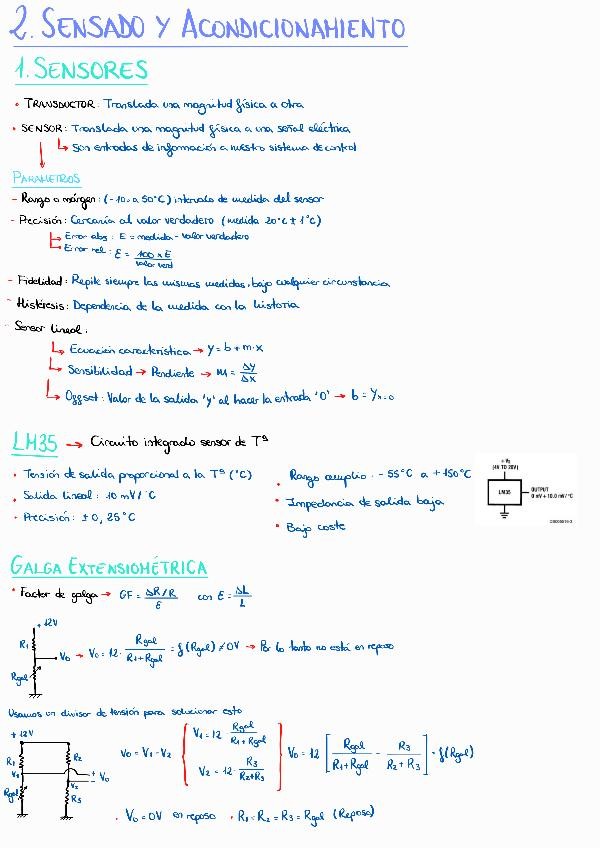 2. SENSADO Y ACONDICIONAMIENTO
1. SENSORES
• TRANSDUCTOR: Translada una magnitud física a otra
• SENSOR: Translada una magnitud física a una señal eléctrica
↳ Son entradas de información a nuestro sistema de control
PARAMETROS
- Rango o márgen: (-10 a 50°C) intervalo de medida del sensor
- Precisión: Cercanía al valor verdadero (medida 20°C ± 1°C)
↳ Error abs: E = medida - valor verdadero
↳ Error rel: E = 100 x E / valor verd
- Fidelidad: Repite siempre las mismas medidas, bajo cualquier circunstancia
- Histéresis: Dependencia de la medida con la historia
- Sensor lineal:
↳ Ecuación característica → y = b + m·x
↳ Sensibilidad → Pendiente → M = Δy / Δx
↳ Offset: Valor de la salida 'y' al hacer la entrada '0' → b = Yx=0
LM35 → Circuito integrado sensor de Tª
• Tensión de salida proporcional a la Tª (°C)
• Salida lineal: 10 mV/°C
• Precisión: ± 0,25°C
• Rango amplio: -55°C a +150°C
• Impedancia de salida baja
• Bajo coste
+ VS
(4V TO 20V)
LM35
OUTPUT
0 mV + 10.0 mV/°C
GALGA EXTENSIOMÉTRICA
• Factor de galga → GF = ΔR/R / E con E = ΔL / L
+12V
R1
Vo → Vo = 12· Rgal / R1+Rgal = f(Rgal) ≠ 0V → Por lo tanto no está en reposo
Rgal
Usamos un divisor de tensión para solucionar esto
+12V
R1 R2
V1 + Vo
V2 -
Rgal R3
Vo = V1 - V2
V1 = 12 Rgal / R1+Rgal
V2 = 12· R3 / R2+R3
Vo = 12 [ Rgal / R1+Rgal - R3 / R2+R3 ] = f(Rgal)
• Vo = 0V en reposo • R1 = R2 = R3 = Rgal (Reposo)